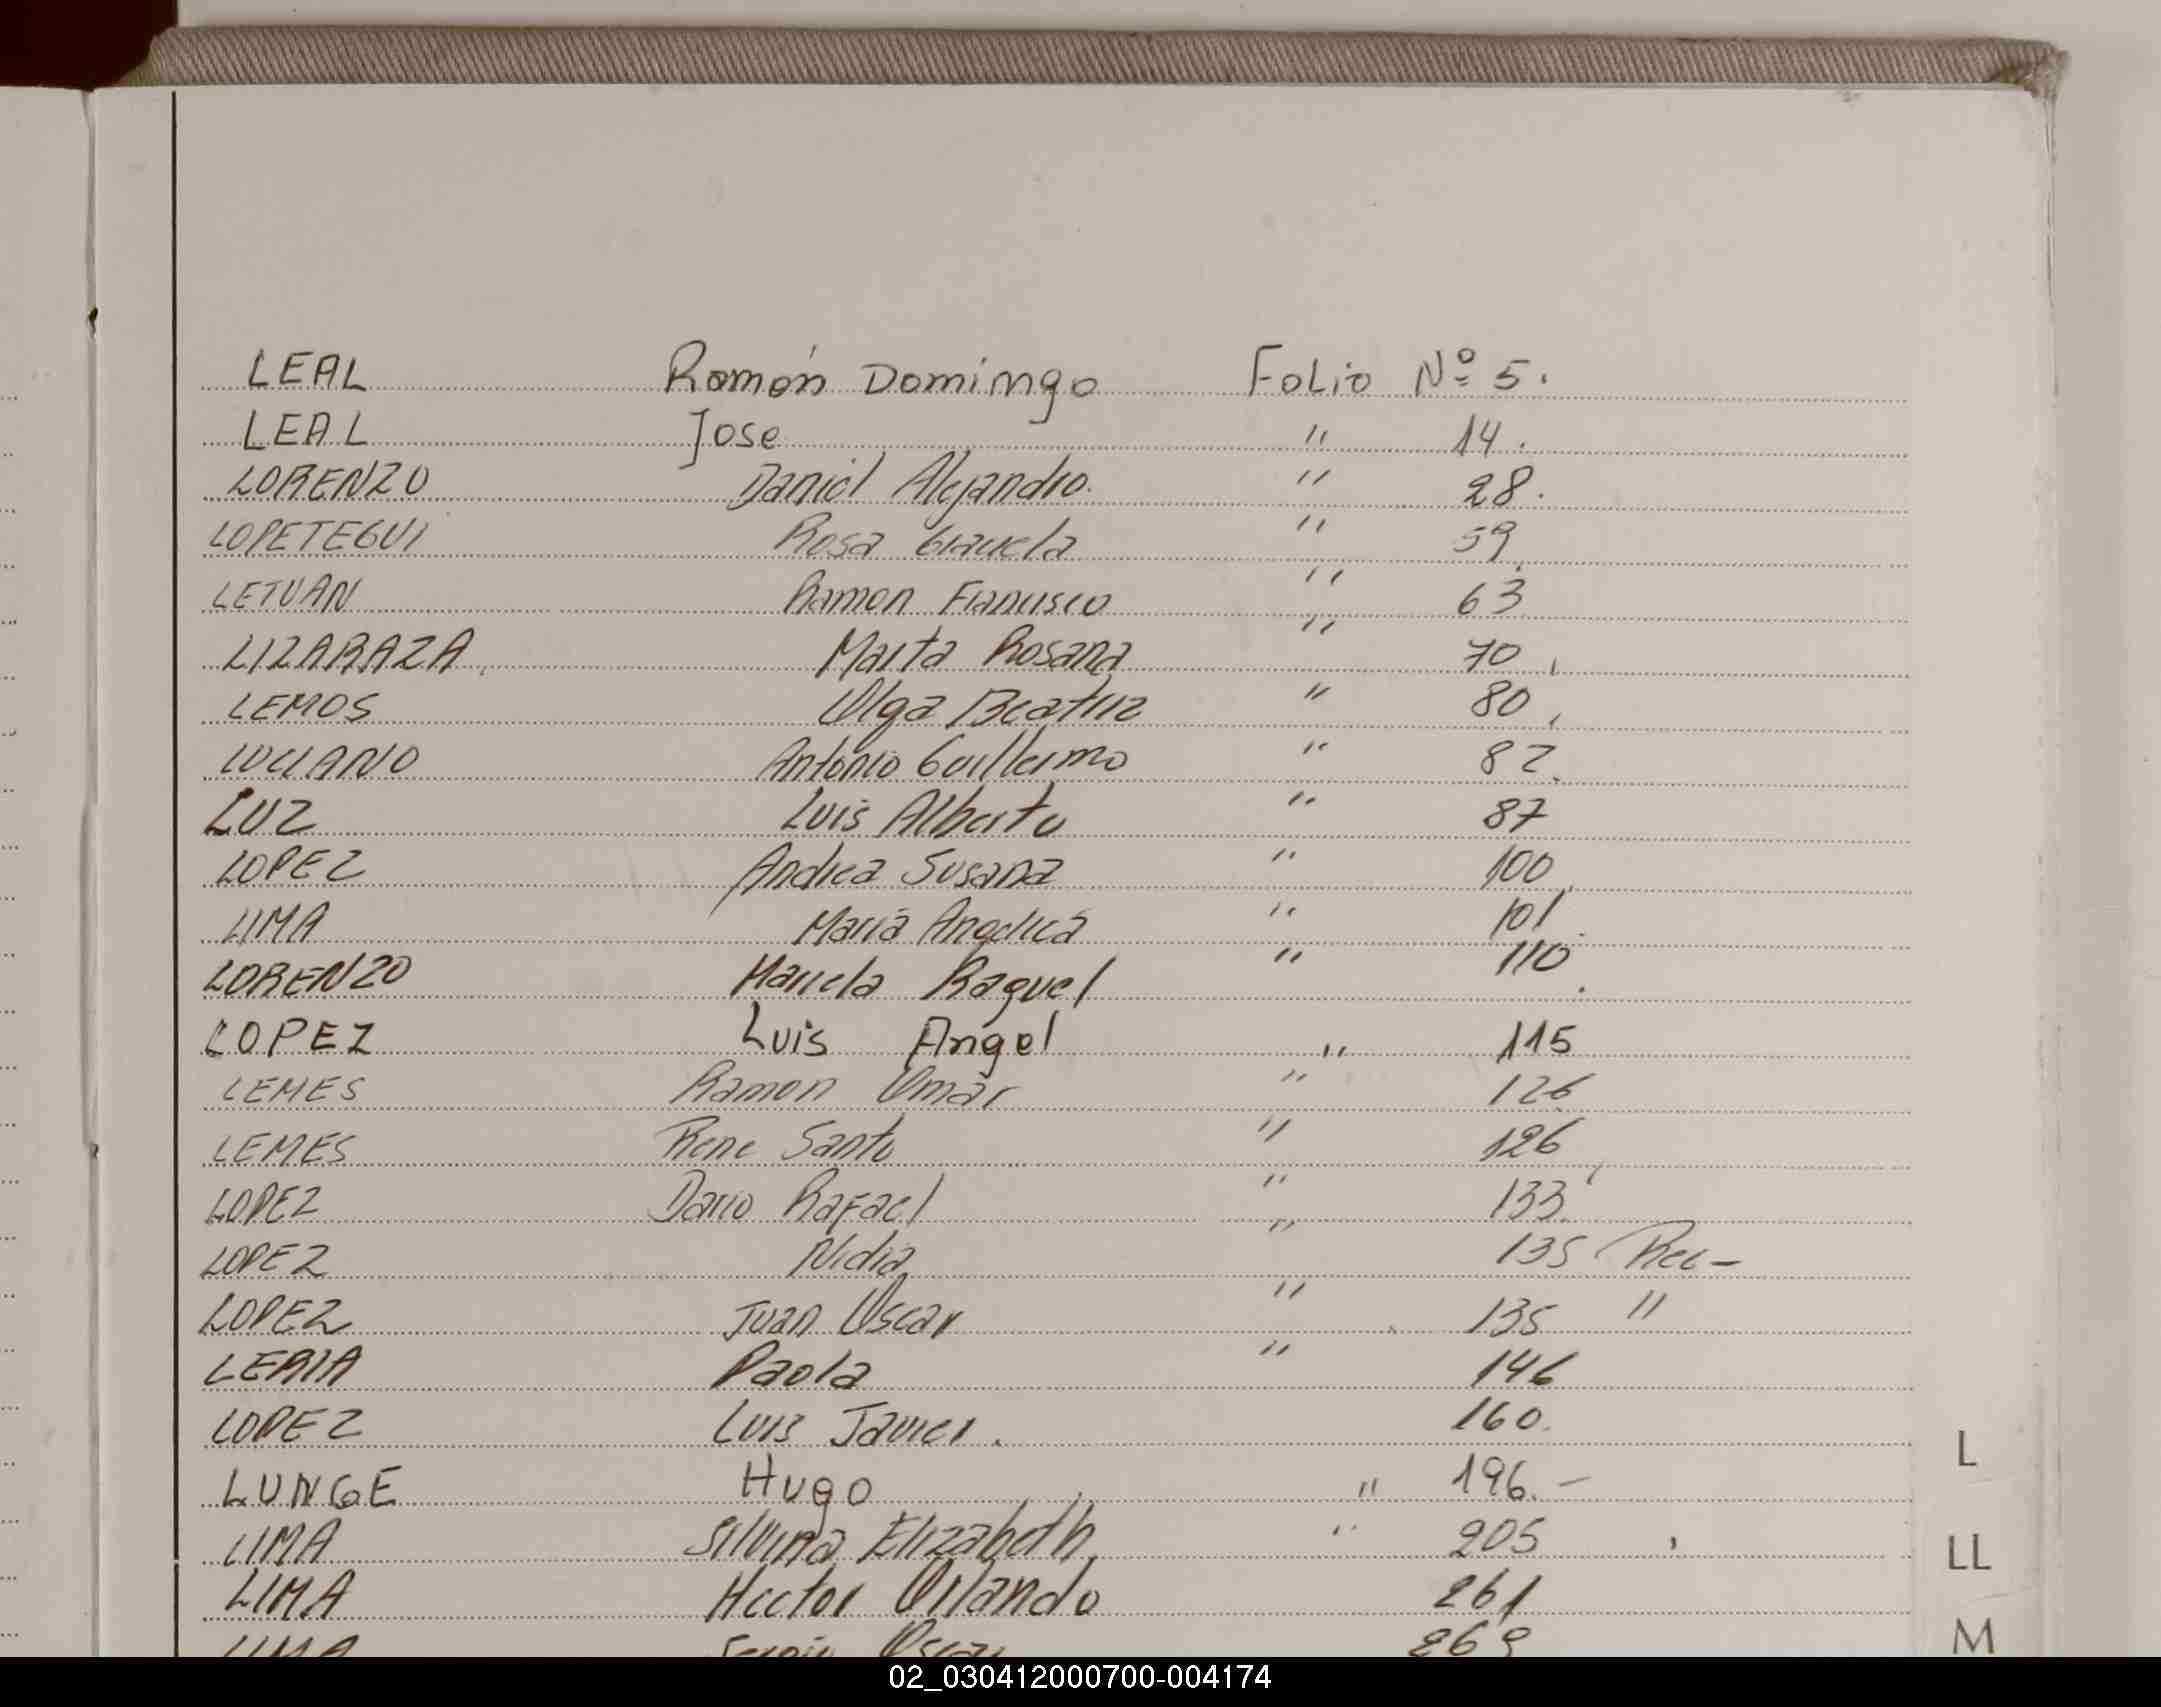 LEAL Ramón Domingo Folio Nº 5.
LEAL Jose " 14.
LORENZO Daniel Alejandro. " 28.
LOPETEGUI Rosa Graciela " 59
LETUAN Ramon Francisco " 63
LIZARAZA Marta Rosana " 70
LEMOS Olga Beatriz " 80
LUCIANO Antonio Guillermo " 82.
LUZ Luis Alberto " 87
LOPEZ Andrea Susana " 100
LIMA Maria Angelica " 101
LORENZO Mariela Raquel " 110
LOPEZ Luis Angel " 115
LEMES Ramon Omar " 126
LEMES Rene Santo " 126
LOPEZ Dario Rafael " 133
LOPEZ Nidia " 135 Rec-
LOPEZ Juan Oscar " 135 "
LERIA Paola " 146
LOPEZ Luis Javier. 160.
LUNGE Hugo " 196.-
LIMA Silvina Elizabeth " 205
LIMA Hector Orlando 261
LIMA Sergio Oscar
L
LL
M
02_030412000700-004174